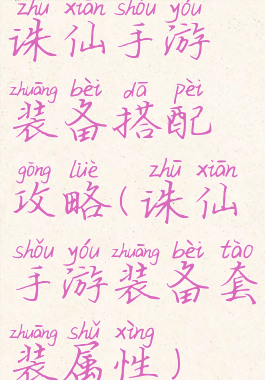 zhū xiān shǒu yóu
诛仙手游
zhuāng bèi dā pèi
装备搭配
gōng lüè zhū xiān
攻略(诛仙
shǒu yóu zhuāng bèi tào
手游装备套
zhuāng shǔ xìng
装属性)